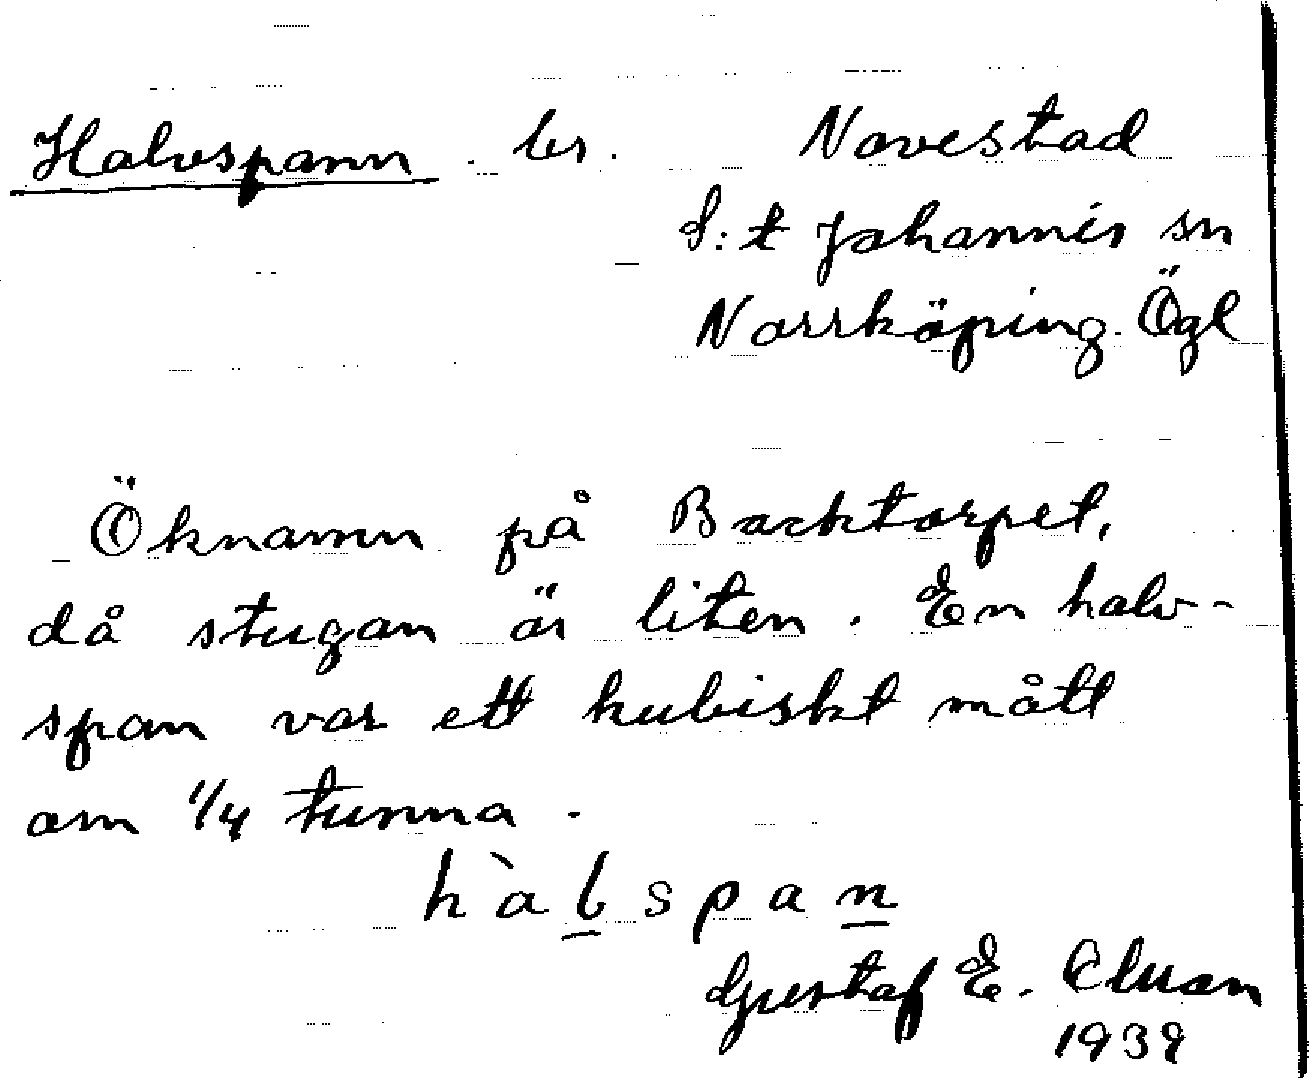 Halvspann. bs. Novestad
S:t Johannis sn
Norrköping. Ögl
Öknamn på Backtorpet,
då stugan är liten. En halv-
span var ett kubiskt mått
om 1/4 tunna.
hàlspan
Gustaf E.
1939